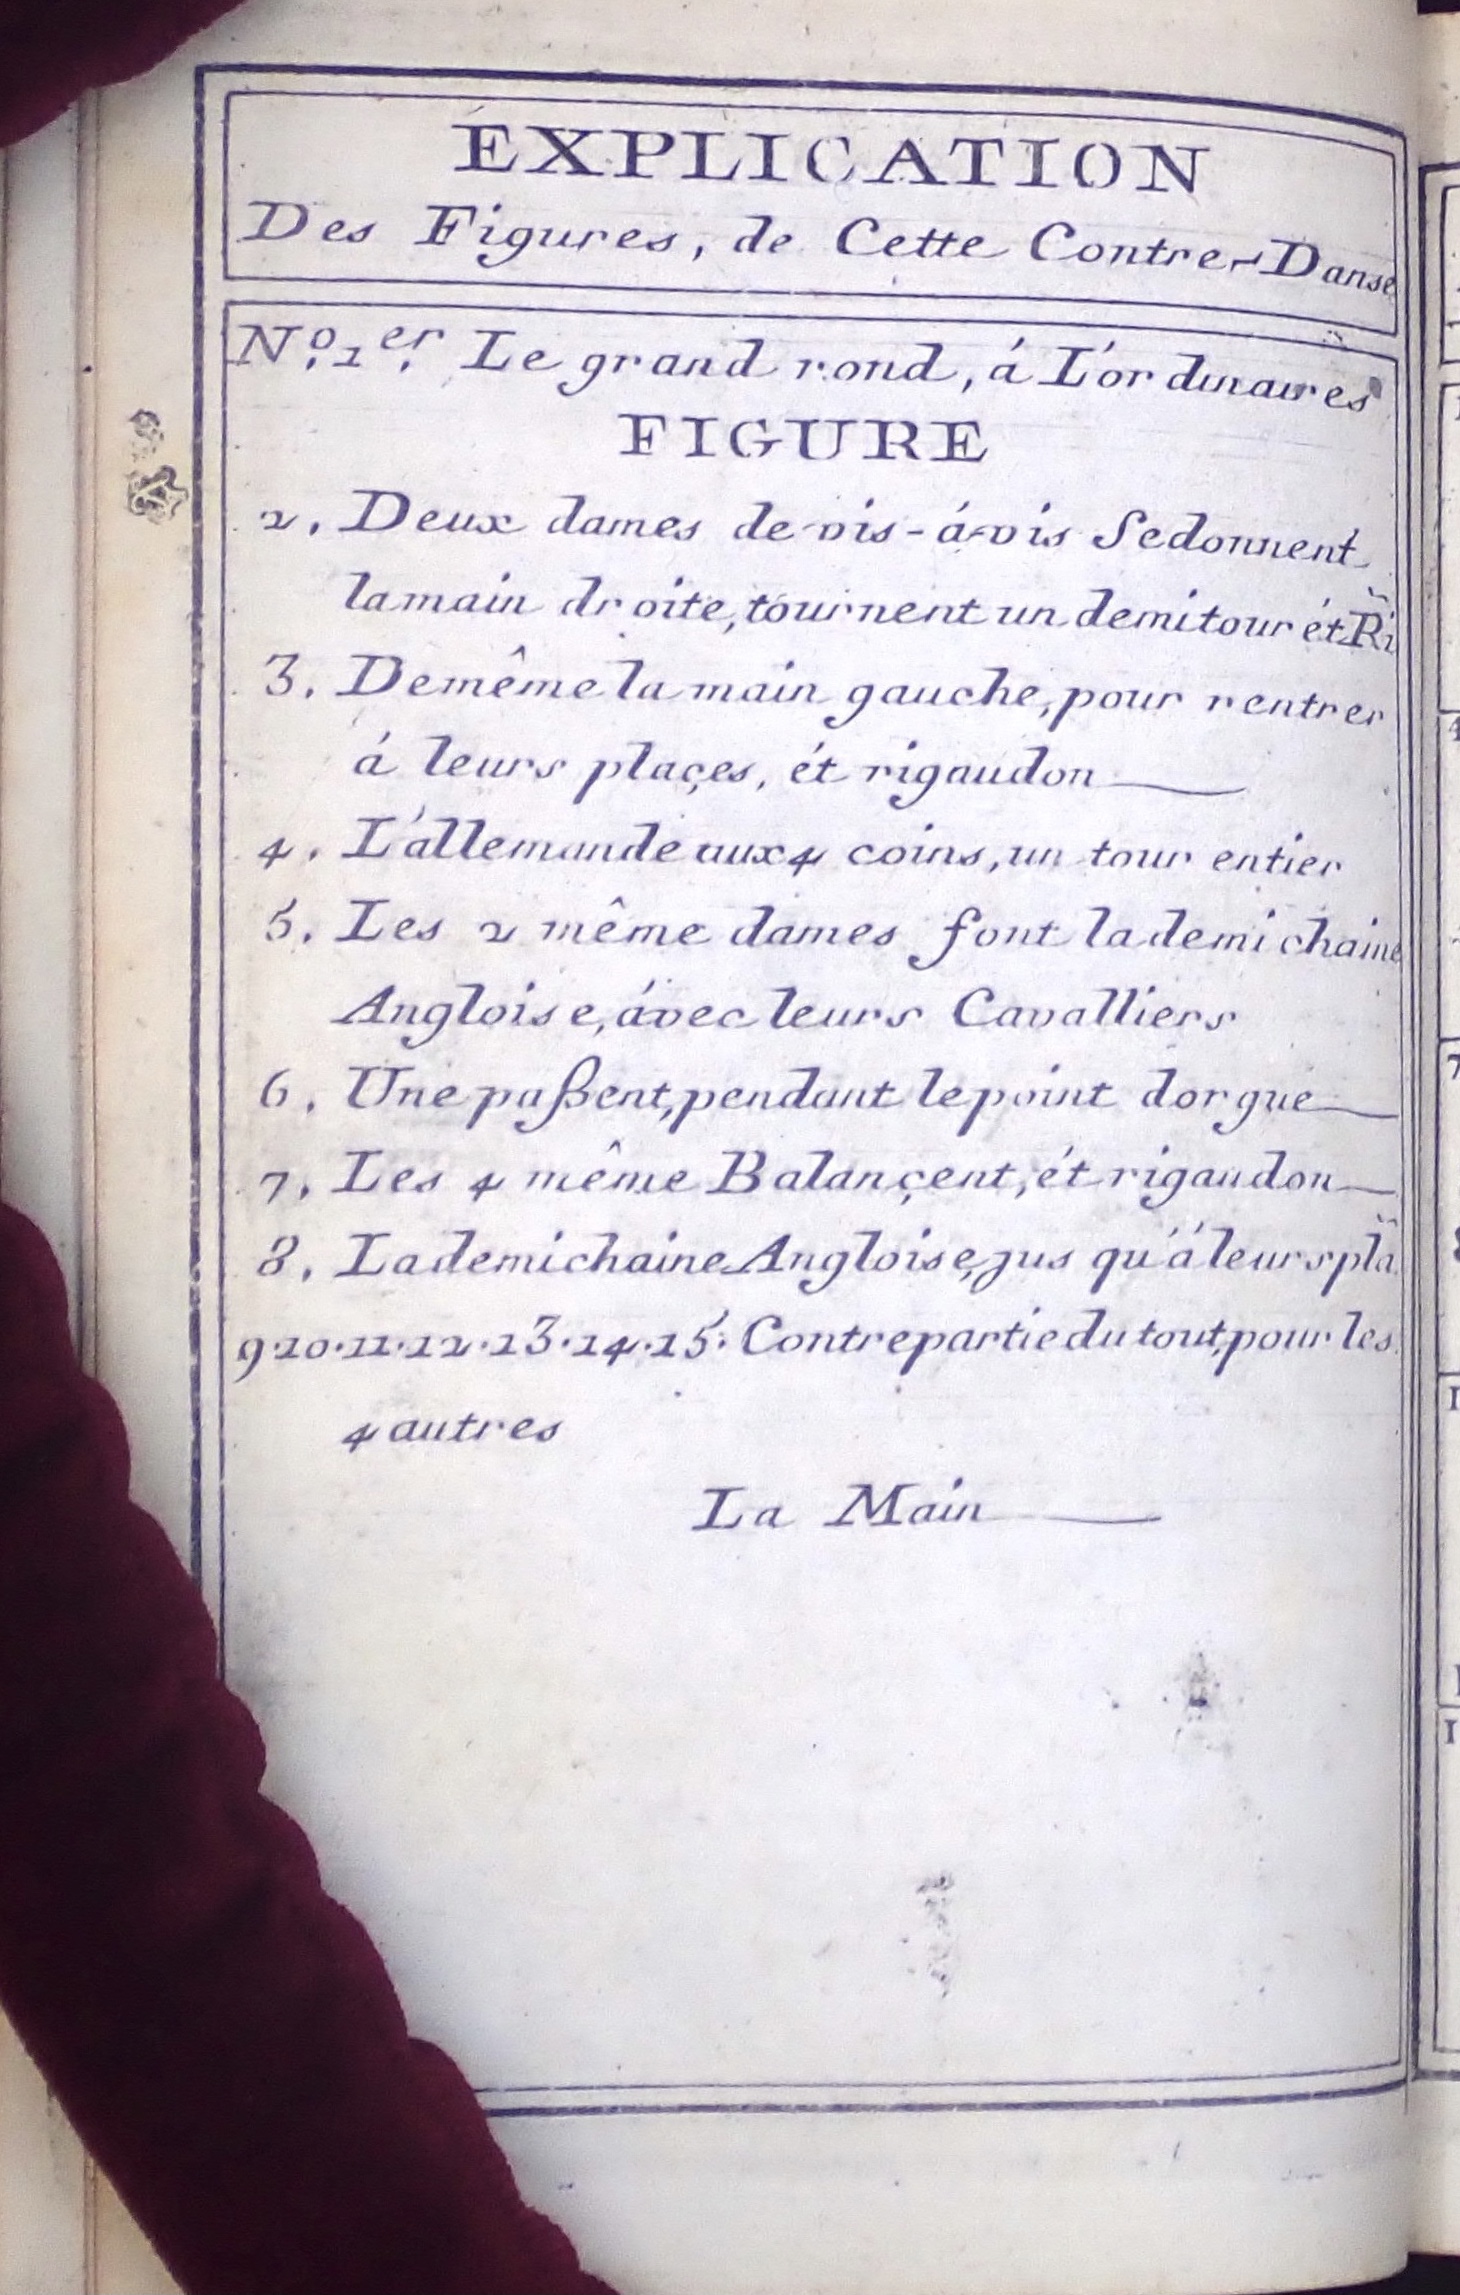 EXPLICATION
Des Figures, de Cette Contre-Danse
N.º 1.er Le grand rond, á L'ordinaires
FIGURE
2. Deux dames de vis-á-vis Sedonnent
lamain droite, tournent un demitour ét Ri
3. Demême la main gauche, pour rentrer
á leurs plaçes, ét rigaudon
4. L'allemande aux 4 coins, un tour entier
5. Les 2 même dames font la demi chaine
Angloise, ávec leurs Cavalliers
6. Une paßent, pendant lepoint dorgue
7. Les 4 même Balançent, ét rigaudon
8. Lademichaine Angloise, jus qu'á leurs pla
9.10.11.12.13.14.15. Contrepartie du tout, pour les
4 autres
La Main